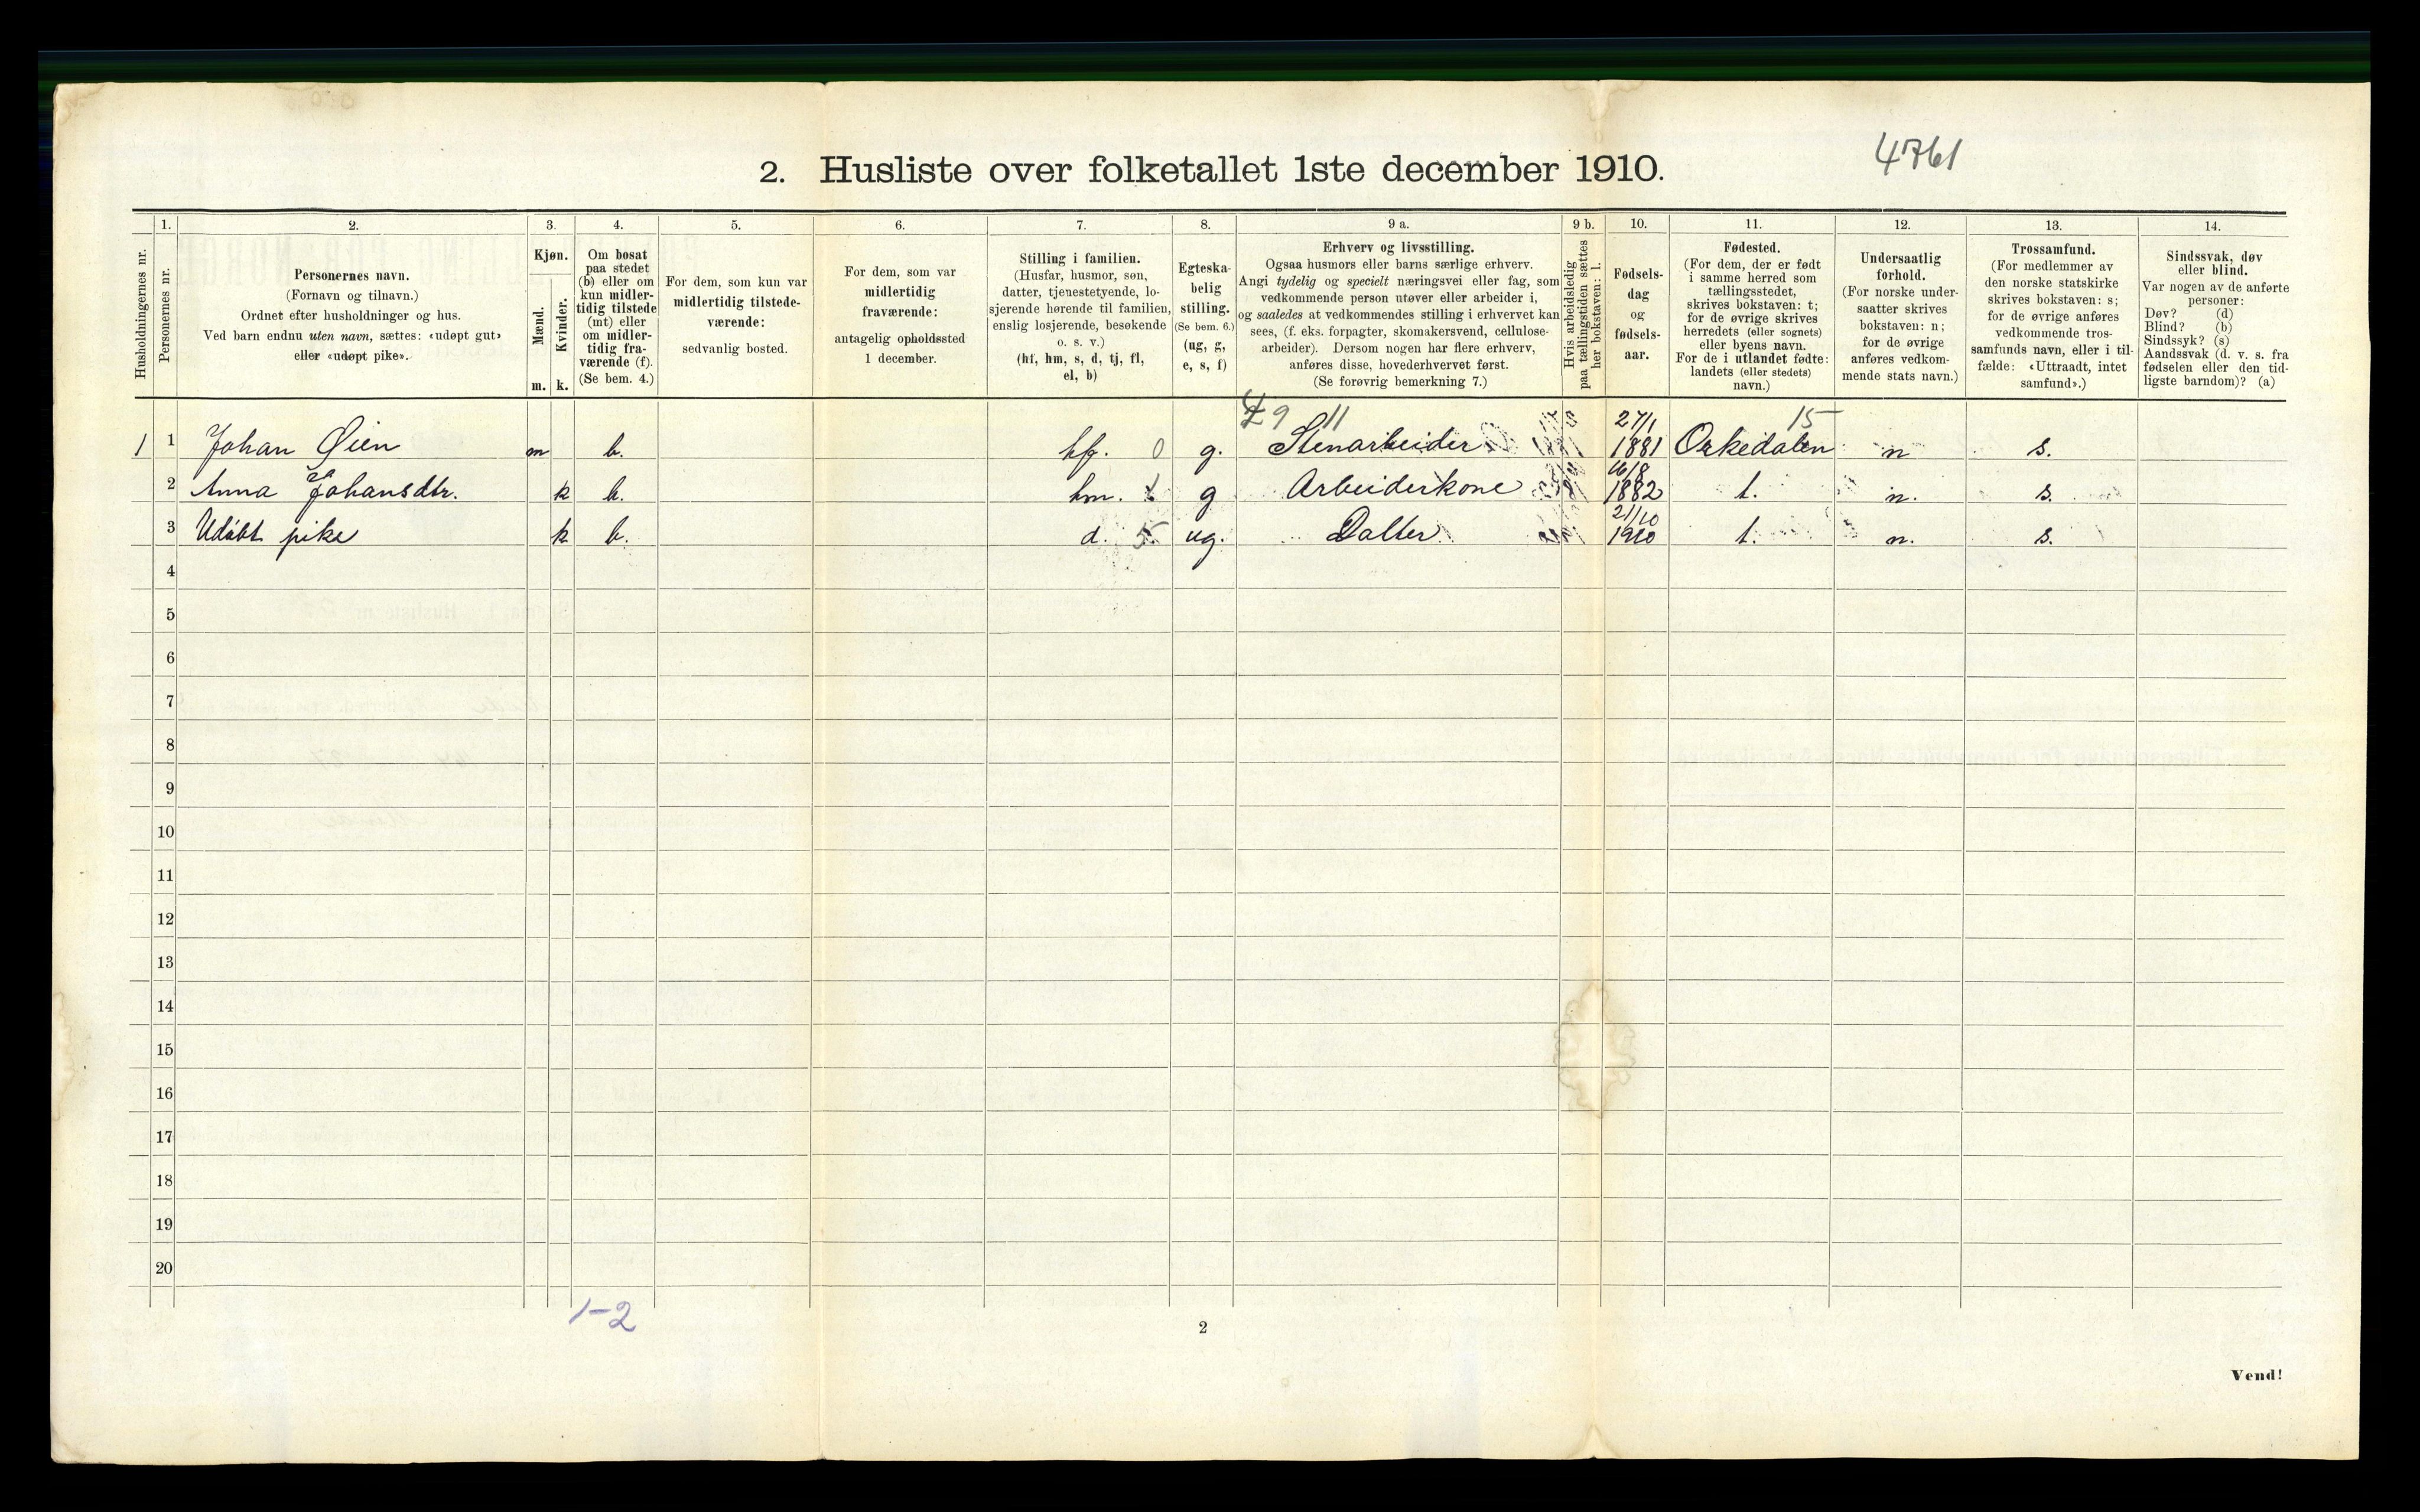 4761
2. Husliste over folketallet 1ste december 1910.
Husholdningernes nr.
1.
Personernes nr.
2.
Personernes navn.
(Fornavn og tilnavn.)
Ordnet efter husholdninger og hus.
Ved barn endnu uten navn, sættes: «udøpt gut»
eller «udøpt pike».
3.
Kjøn.
Mænd.
Kvinder.
m. k.
4.
Om bosat
paa stedet
(b) eller om
kun midler-
tidig tilstede
(mt) eller
om midler-
tidig fra-
værende (f).
(Se bem. 4.)
5.
For dem, som kun var
midlertidig tilstede-
værende:
sedvanlig bosted.
6.
For dem, som var
midlertidig
fraværende:
antagelig opholdssted
1 december.
7.
Stilling i familien.
(Husfar, husmor, søn,
datter, tjenestetyende, lo-
sjerende hørende til familien,
enslig losjerende, besøkende
o. s. v.)
(hf, hm, s, d, tj, fl,
el, b)
8.
Egteska-
belig
stilling.
(Se bem. 6.)
(ug, g,
e, s, f)
9 a.
Erhverv og livsstilling.
Ogsaa husmors eller barns særlige erhverv.
Angi tydelig og specielt næringsvei eller fag, som
vedkommende person utøver eller arbeider i,
og saaledes at vedkommendes stilling i erhvervet kan
sees, (f. eks. forpagter, skomakersvend, cellulose-
arbeider). Dersom nogen har flere erhverv,
anføres disse, hovederhvervet først.
(Se forøvrig bemerkning 7.)
9 b.
Hvis arbeidsledig
paa tællingstiden sættes
her bokstaven: l.
10.
Fødsels-
dag
og
fødsels-
aar.
11.
Fødested.
(For dem, der er født
i samme herred som
tællingsstedet,
skrives bokstaven: t;
for de øvrige skrives
herredets (eller sognets)
eller byens navn.
For de i utlandet fødte:
landets (eller stedets)
navn.)
12.
Undersaatlig
forhold.
(For norske under-
saatter skrives
bokstaven: n;
for de øvrige
anføres vedkom-
mende stats navn.)
13.
Trossamfund.
(For medlemmer av
den norske statskirke
skrives bokstaven: s;
for de øvrige anføres
vedkommende tros-
samfunds navn, eller i til-
fælde: «Uttraadt, intet
samfund».)
14.
Sindssvak, døv
eller blind.
Var nogen av de anførte
personer:
Døv? (d)
Blind? (b)
Sindssyk? (s)
Aandssvak (d. v. s. fra
fødselen eller den tid-
ligste barndom)? (a)
11 27/1 15
1 1 Johan Øien m b. hf. 0 g. Stenarbeider 1881 Orkedalen n s.
16/8
2 Anna Johansdtr. k b. hm. g Arbeiderkone 1882 t. n. s.
21/10
3 Udøbt pike k b. d. 5 ug. Datter 1910 t. n. s.
4
5
6
7
8
9
10
11
12
13
14
15
16
17
18
19
20
1-2
2
Vend!